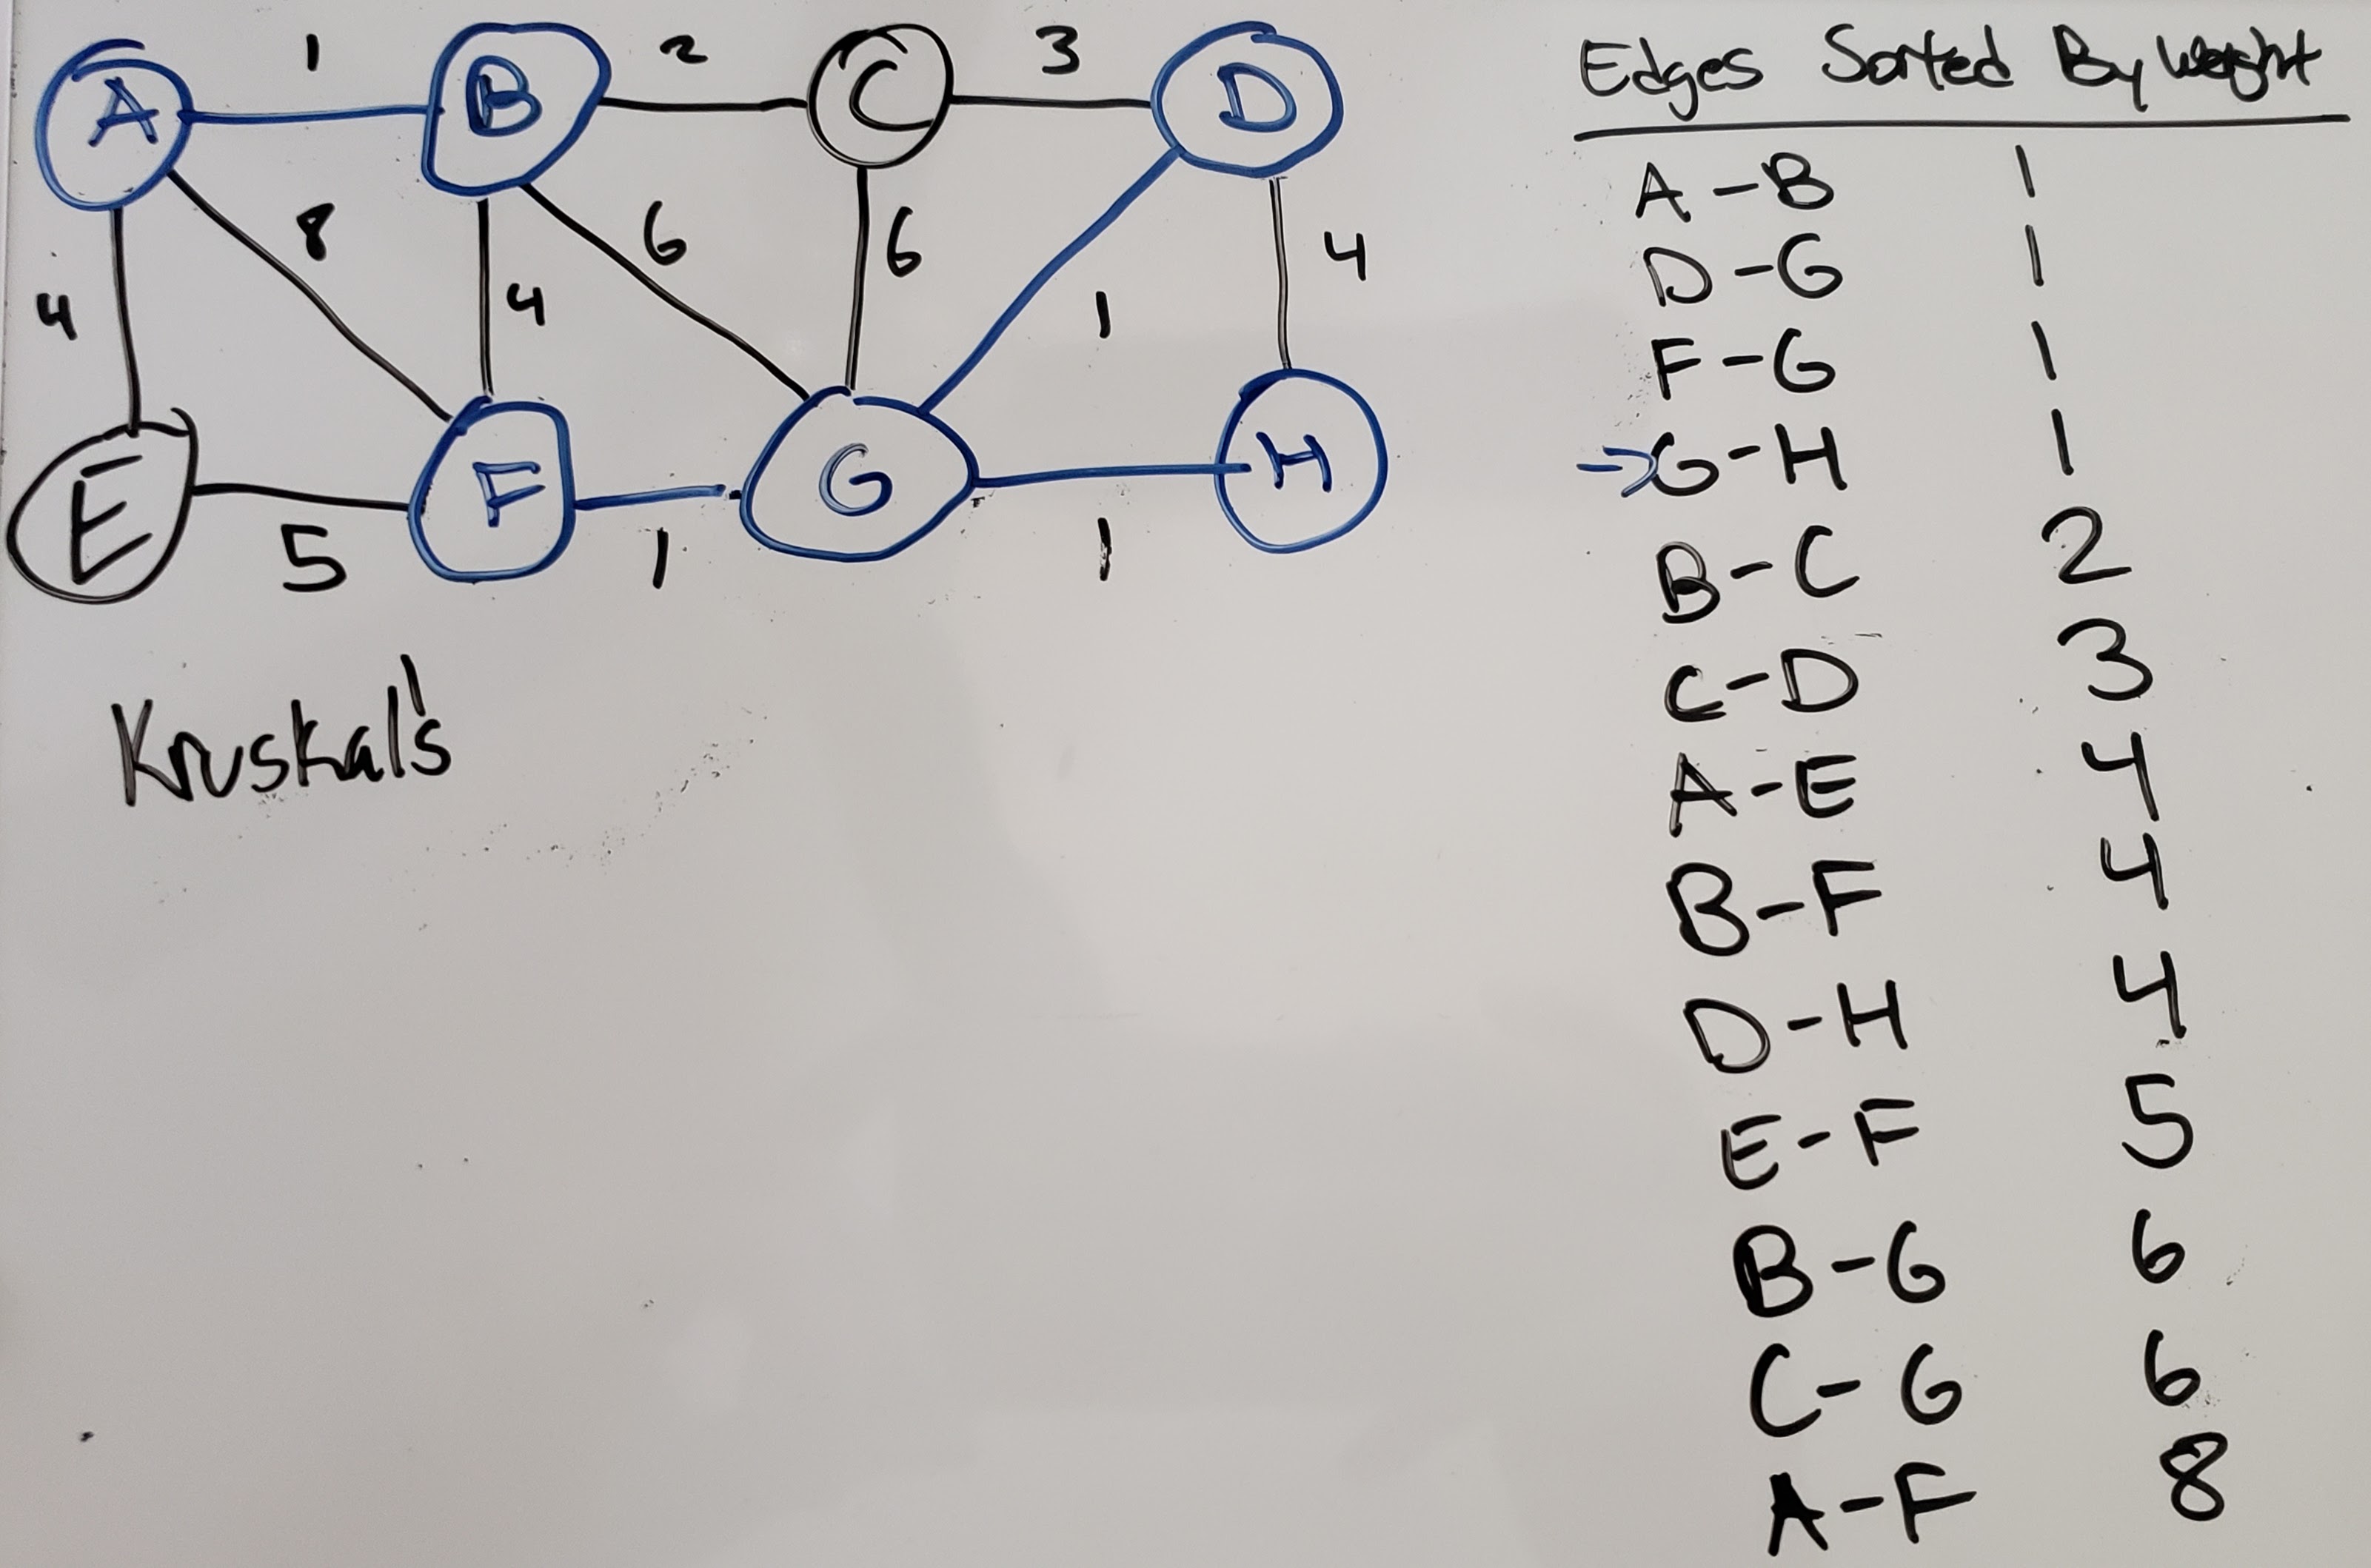 1 2 3
A B C D
8 6 6 4
4 4 1
E F G H
5 1 1
Kruskal's
Edges Sorted By Weight
A-B 1
D-G 1
F-G 1
→G-H 1
B-C 2
C-D 3
A-E 4
B-F 4
D-H 4
E-F 5
B-G 6
C-G 6
A-F 8